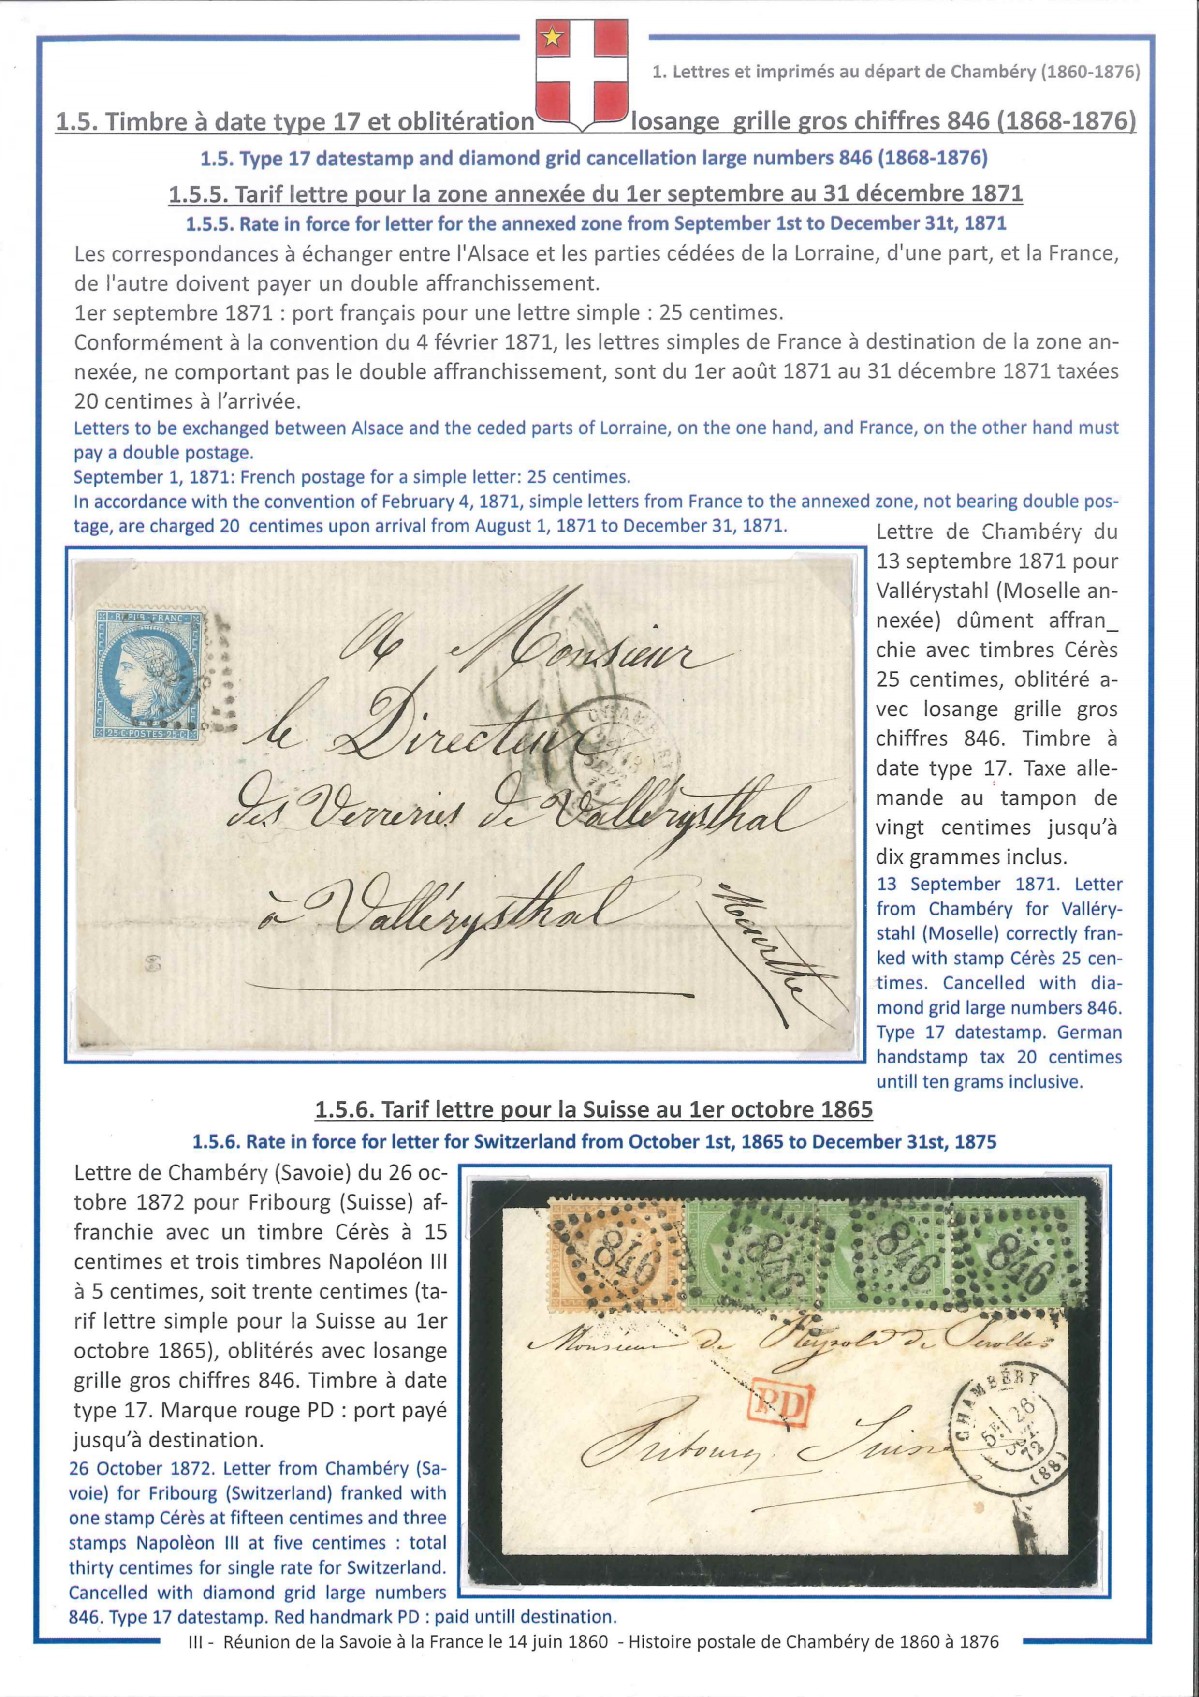 1. Lettres et imprimés au départ de Chambéry (1860-1876)
1.5. Timbre à date type 17 et oblitération losange grille gros chiffres 846 (1868-1876)
1.5. Type 17 datestamp and diamond grid cancellation large numbers 846 (1868-1876)
1.5.5. Tarif lettre pour la zone annexée du 1er septembre au 31 décembre 1871
1.5.5. Rate in force for letter for the annexed zone from September 1st to December 31t, 1871
Les correspondances à échanger entre l'Alsace et les parties cédées de la Lorraine, d'une part, et la France,
de l'autre doivent payer un double affranchissement.
1er septembre 1871 : port français pour une lettre simple : 25 centimes.
Conformément à la convention du 4 février 1871, les lettres simples de France à destination de la zone an-
nexée, ne comportant pas le double affranchissement, sont du 1er août 1871 au 31 décembre 1871 taxées
20 centimes à l'arrivée.
Letters to be exchanged between Alsace and the ceded parts of Lorraine, on the one hand, and France, on the other hand must
pay a double postage.
September 1, 1871: French postage for a simple letter: 25 centimes.
In accordance with the convention of February 4, 1871, simple letters from France to the annexed zone, not bearing double pos-
tage, are charged 20 centimes upon arrival from August 1, 1871 to December 31, 1871.
Lettre de Chambéry du
13 septembre 1871 pour
Vallérystahl (Moselle an-
nexée) dûment affran_
chie avec timbres Cérès
25 centimes, oblitéré a-
vec losange grille gros
chiffres 846. Timbre à
date type 17. Taxe alle-
mande au tampon de
vingt centimes jusqu'à
dix grammes inclus.
13 September 1871. Letter
from Chambéry for Valléry-
stahl (Moselle) correctly fran-
ked with stamp Cérès 25 cen-
times. Cancelled with dia-
mond grid large numbers 846.
Type 17 datestamp. German
handstamp tax 20 centimes
untill ten grams inclusive.
REPUB. FRANC.
25 C. POSTES 25 C.
A Monsieur
le Directeur
CHAMBÉRY
13
SEPT
71
des Verreries de Vallérysthal
à Vallérysthal
Meurthe
1.5.6. Tarif lettre pour la Suisse au 1er octobre 1865
1.5.6. Rate in force for letter for Switzerland from October 1st, 1865 to December 31st, 1875
Lettre de Chambéry (Savoie) du 26 oc-
tobre 1872 pour Fribourg (Suisse) af-
franchie avec un timbre Cérès à 15
centimes et trois timbres Napoléon III
à 5 centimes, soit trente centimes (ta-
rif lettre simple pour la Suisse au 1er
octobre 1865), oblitérés avec losange
grille gros chiffres 846. Timbre à date
type 17. Marque rouge PD : port payé
jusqu'à destination.
26 October 1872. Letter from Chambéry (Sa-
voie) for Fribourg (Switzerland) franked with
one stamp Cérès at fifteen centimes and three
stamps Napolèon III at five centimes : total
thirty centimes for single rate for Switzerland.
Cancelled with diamond grid large numbers
846. Type 17 datestamp. Red handmark PD : paid untill destination.
846 846 846 846
Monsieur de
PD
Fribourg Suisse
CHAMBÉRY
5E 26
OCT.
72
(88)
III - Réunion de la Savoie à la France le 14 juin 1860 - Histoire postale de Chambéry de 1860 à 1876